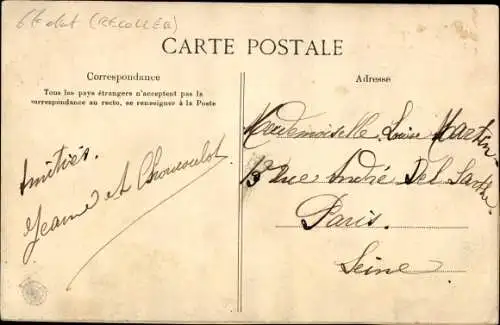 (RECOLLÉE)
CARTE POSTALE
Correspondance
Tous les pays étrangers n'acceptent pas la
correspondance au recto, se renseigner à la Poste
Adresse
Amitiés.
Jeanne et
Mademoiselle Louise Martin
13 Rue André Del Sarte
Paris.
Seine